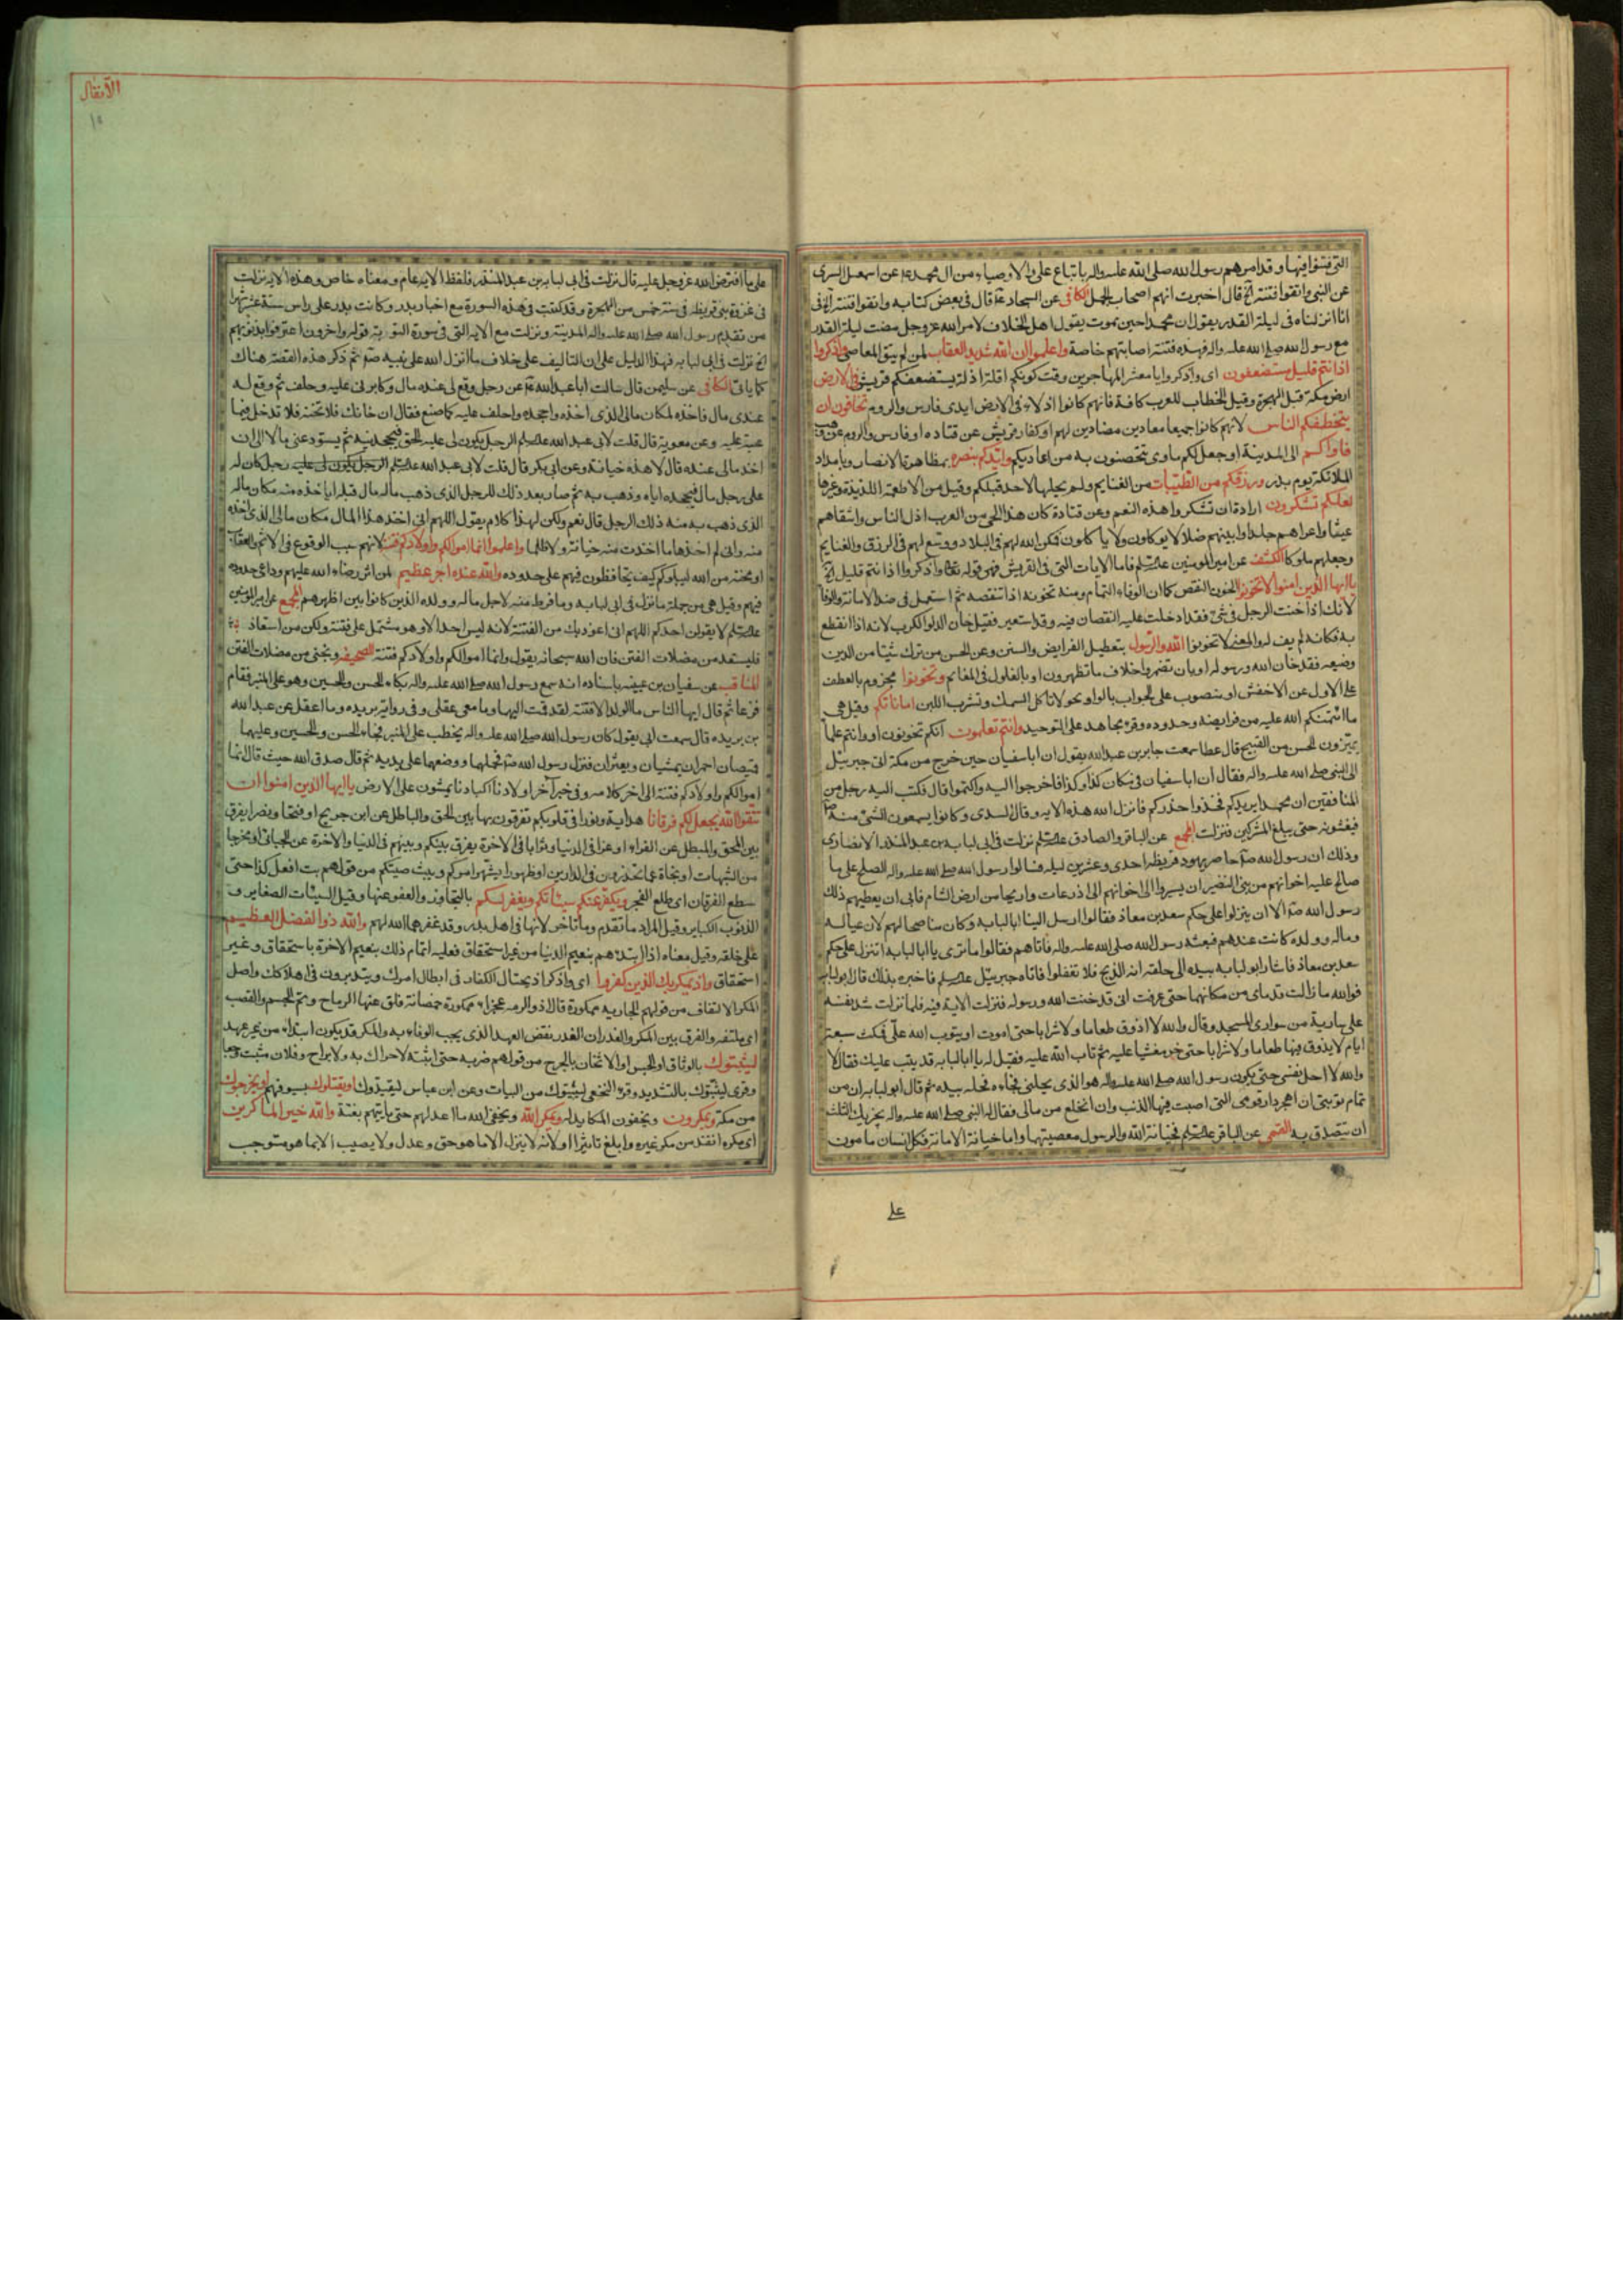 التى فتنوا فيها وقد امرهم رسول الله صلى الله عليه واله باتباع على والاوصياء من ال محمد ع عن اسمعيل السرى
عن النبى واتقوا فتنة الخ قال اخبرت انهم اصحاب الجمل الكافى عن السجاد ع قال فى بعض كتابه واتقوا فتنة الخ فى
انا انزلناه فى ليلة القدر يقول ان محمدا حين يموت يقول اهل الخلاف لامر الله عز وجل مضت ليلة القدر
مع رسول الله صلى الله عليه واله فهذه فتنة اصابتهم خاصة واعلموا ان الله شديد العقاب لمن لم يتق المعاصى واذكروا
اذ انتم قليل مستضعفون اى واذكروا يا معشر المهاجرين وقت كونكم اقلة اذلة يستضعفكم قريش فى الارض
ارض مكة قبل الهجرة وقيل الخطاب للعرب كافة فانهم كانوا اذلاء فى الارض ايدى فارس والروم تخافون ان
يتخطفكم الناس لانهم كانوا جميعا معادين مضادين لهم او كفار قريش عن قتاده او فارس والروم عن وهب
فاواكم الى المدينة او جعل لكم ماوى تتحصنون به من اعاديكم وايدكم بنصره بمظاهرة الانصار وبامداد
الملائكة يوم بدر ورزقكم من الطيبات من الغنايم ولم يحلها لاحد قبلكم وقيل من الاطعمة اللذيذة وغيرها
لعلكم تشكرون ارادة ان تشكروا هذه النعم وعن قتادة كان هذا الحى من العرب اذل الناس واشقاهم
عيشا واعراهم جلدا وابينهم ضلالا يوكلون ولا ياكلون فمكن الله لهم فى البلاد ووسع لهم فى الرزق والغنايم
وجعلهم ملوكا الكشف عن امير المومنين عليه السلم فاما الايات التى فى القريش فهو قوله تعالى واذكروا اذ انتم قليل الخ
يا ايها الذين امنوا لا تخونوا الخون النقص كما ان الوفاء التمام ومنه تخونه اذا تنقصه ثم استعمل فى ضد الامانة والوفا
لانك اذا خنت الرجل فى شئ فقد ادخلت عليه النقصان فيه وقد استعير فقيل خان الدلو الكرب لانه اذا انقطع
به فكانه لم يف له والمعنى لا تخونوا الله والرسول بتعطيل الفرايض والسنن وعن الحسن من ترك شيئا من الدين
وضيعه فقد خان الله ورسوله او بان تضمروا خلاف ما تظهرون او بالغلول فى المغانم وتخونوا مجزوم بالعطف
على الاول عن الاخفش او منصوب على الجواب بالواو نحو لا تاكل السمك وتشرب اللبن اماناتكم وقيل هى
ما ائتمنكم الله عليه من فرايضه وحدوده وقرء مجاهد على التوحيد وانتم تعلمون انكم تخونون او وانتم علماء
يميزون الحسن من القبيح قال عطا سمعت جابر بن عبد الله يقول ان اباسفيان حين خرج من مكة اتى جبرئيل
الى النبى صلى الله عليه واله فقال ان اباسفيان فى مكان كذا وكذا فاخرجوا اليه واكتموا قال فكتب اليه رجل من
المنافقين ان محمدا يريدكم فخذوا حذركم فانزل الله هذه الايه وقال السدى وكانوا يسمعون الشئ منه ص
فيفشونه حتى يبلغ المشركين فنزلت المجمع عن الباقر والصادق عليه السلم نزلت فى ابى لبابه بن عبد المنذر الانصارى
وذلك ان رسول الله ص حاصر يهود قريظه احدى وعشرين ليله فسالوا رسول الله صلى الله عليه واله الصلح على ما
صالح عليه اخوانهم من بنى النضير ان يسيروا الى اخوانهم الى اذرعات واريحا من ارض الشام فابى ان يعطيهم ذلك
رسول الله ص الا ان ينزلوا على حكم سعد بن معاذ فقالوا ارسل الينا ابالبابه وكان مناصحا لهم لان عياله
وماله وولده كانت عندهم فبعثه رسول الله صلى الله عليه واله فاتاهم فقالوا ما ترى يا ابالبابه اننزل على حكم
سعد بن معاذ فاشار ابولبابه بيده الى حلقه انه الذبح فلا تفعلوا فاتاه جبرئيل عليه السلم فاخبره بذلك قال ابولبابه
فوالله ما زالت قدماى من مكانهما حتى عرفت انى قد خنت الله ورسوله فنزلت الاية فيه فلما نزلت شد نفسه
على سارية من سوارى المسجد وقال والله لا اذوق طعاما ولا شرابا حتى اموت او يتوب الله على فمكث سبعة
ايام لا يذوق فيها طعاما ولا شرابا حتى خر مغشيا عليه ثم تاب الله عليه فقيل له يا ابالبابه قد تيب عليك فقال لا
والله لا احل نفسى حتى يكون رسول الله صلى الله عليه واله هو الذى يحلنى فجاءه فحله بيده ثم قال ابولبابه ان من
تمام توبتى ان اهجر دار قومى التى اصبت فيها الذنب وان انخلع من مالى فقال له النبى صلى الله عليه واله يجزيك الثلث
ان تتصدق به القمى عن الباقر عليه السلم فخيانة الله والرسول معصيتهما واما خيانة الامانة فكل انسان مامون
على
الانفال
١٥
على ما افترض الله عز وجل عليه قال نزلت فى ابى لبابه بن عبد المنذر فلفظ الايه عام ومعناه خاص وهذه الايه نزلت
فى غزوة بنى قريظه فى سنة خمس من الهجرة وقد كتبت فى هذه السورة مع اخبار بدر وكانت بدر على راس ستة عشر شهرا
من مقدم رسول الله صلى الله عليه واله المدينة ونزلت مع الايه التى فى سورة التوبة قوله واخرون اعترفوا بذنوبهم
الخ نزلت فى ابى لبابه فهذا الدليل على ان التاليف على خلاف ما انزل الله على نبيه ص ثم ذكر هذه القصة هناك
كما ياتى الكافى عن سليمن قال سالت اباعبد الله ع عن رجل وقع لى عنده مال وكابرنى عليه وحلف ثم وقع له
عندى مال فاخذه لمكان مالى الذى اخذه واجحده واحلف عليه كما صنع فقال ان خانك فلا تخنه فلا تدخل فيما
عبته عليه وعن معوية قال قلت لابى عبد الله عليه السلم الرجل يكون لى عليه الحق فيجحدنيه ثم يستودعنى مالا الى ان
اخذ مالى عنده قال لا هذه خيانة وعن ابى بكر قال قلت لابى عبد الله عليه السلم الرجل يكون لى عليه رجل كان له
على رجل مال فيجحده اياه وذهب به ثم صار بعد ذلك للرجل الذى ذهب بماله مال قبله اياخذه منه مكان ماله
الذى ذهب به منه ذلك الرجل قال نعم ولكن لهذا كلام يقول اللهم انى اخذ هذا المال مكان مالى الذى اخذه
منه وانى لم اخذ ما اخذت منه خيانة ولا ظلما واعلموا انما اموالكم واولادكم فتنة لانهم سبب الوقوع فى الاثم والعقاب
او محنة من الله ليبلوكم كيف تحافظون فيهم على حدوده والله عنده اجر عظيم لمن اثر رضاء الله عليهم وداعى حدوده
فيهم وقيل هى من جملة ما نزل فى ابى لبابه وما فرط منه لاجل ماله وولده الذين كانوا بين اظهرهم المجمع عن امير المومنين
عليه السلم لا يقولن احدكم اللهم انى اعوذ بك من الفتنة لانه ليس احد الا وهو مشتمل على فتنة ولكن من استعاذ
فليستعذ من مضلات الفتن فان الله سبحانه يقول وانما اموالكم واولادكم فتنة الصحيفه ونجنى من مضلات الفتن
المناقب عن سفيان بن عيينه باسناده انه سمع رسول الله صلى الله عليه واله بكاء الحسن والحسين وهو على المنبر فقام
فزعا ثم قال ايها الناس ما الولد الا فتنة لقد قمت اليهما وما معى عقلى وفى رواية بريده وما اعقل عن عبد الله
بن بريده قال سمعت ابى يقول كان رسول الله صلى الله عليه واله يخطب على المنبر فجاء الحسن والحسين وعليهما
قميصان احمران يمشيان ويعثران فنزل رسول الله ص فحملهما ووضعهما على يديه ثم قال صدق الله حيث قال انما
اموالكم واولادكم فتنة الى اخر كلامه وفى خبر آخر اولادنا اكبادنا يمشون على الارض يا ايها الذين امنوا ان
تتقوا الله يجعل لكم فرقانا هداية ونورا فى قلوبكم تفرقون بها بين الحق والباطل عن ابن جريج او فتحا ونصرا يفرق
بين المحق والمبطل عن الفراء او عزا فى الدنيا وثوابا فى الاخرة يفرق بينكم وبينهم فى الدنيا والاخرة عن الجبائى او مخرجا
من الشبهات او نجاة عما تحذرون فى الدارين او ظهورا يشهر امركم ويبث صيتكم من قولهم بت افعل كذا حتى
سطع الفرقان اى طلع الفجر ويكفر عنكم سيئاتكم ويغفر لكم بالتجاوز والعفو عنها وقيل السيئات الصغاير و
الذنوب الكباير وقيل المراد ما تقدم وما تاخر لانها فى اهل بدر وقد غفرهما الله لهم والله ذو الفضل العظيم
على خلقه وقيل معناه اذا ابتدءهم بنعيم الدنيا من غير استحقاق فعليه اتمام ذلك بنعيم الاخرة باستحقاق وغير
استحقاق واذ يمكر بك الذين كفروا اى واذكر اذ يحتال الكفار فى ابطال امرك ويتدبرون فى هلاكك واصل
المكر الالتفاف من قولهم لجارية ممكورة قال ذو الرمه عجزاء ممكورة خمصانة قلق عنها الوشاح وتم الجسم والقصب
اى ملتفه والفرق بين المكر والغدر ان الغدر نقض العهد الذى يجب الوفاء به والمكر قد يكون ابتداء من غير عهد
ليثبتوك بالوثاق او الحبس او الاثخان بالجرح من قولهم ضربه حتى اثبته لا حراك به ولا براح وفلان مثبت وجعا
وقرى ليثبتوك بالتشديد وقرء النخعى ليبيتوك من البيات وعن ابن عباس ليقيدوك او يقتلوك بسيوفهم او يخرجوك
من مكة ويمكرون ويخفون المكايد له ويمكر الله ويخفى الله ما اعد لهم حتى ياتيهم بغتة والله خير الماكرين
اى مكره انفذ من مكر غيره وابلغ تاثيرا او لانه لا ينزل الا ما هو حق وعدل ولا يصيب الا بما هو مستوجب